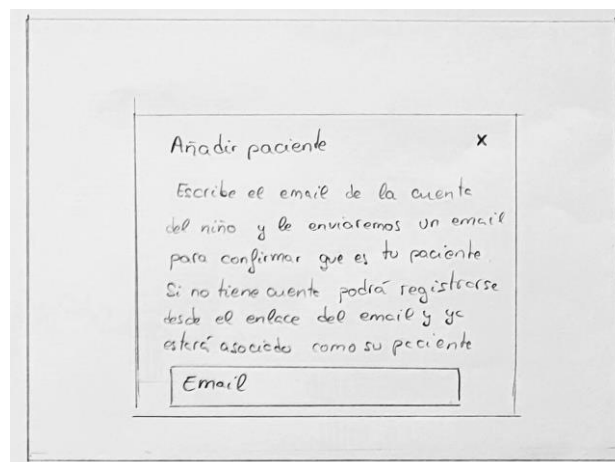 Añadir paciente x
Escribe el email de la cuenta
del niño y le enviaremos un email
para confirmar que es tu paciente.
Si no tiene cuenta podrá registrarse
desde el enlace del email y ya
estará asociado como su paciente
Email